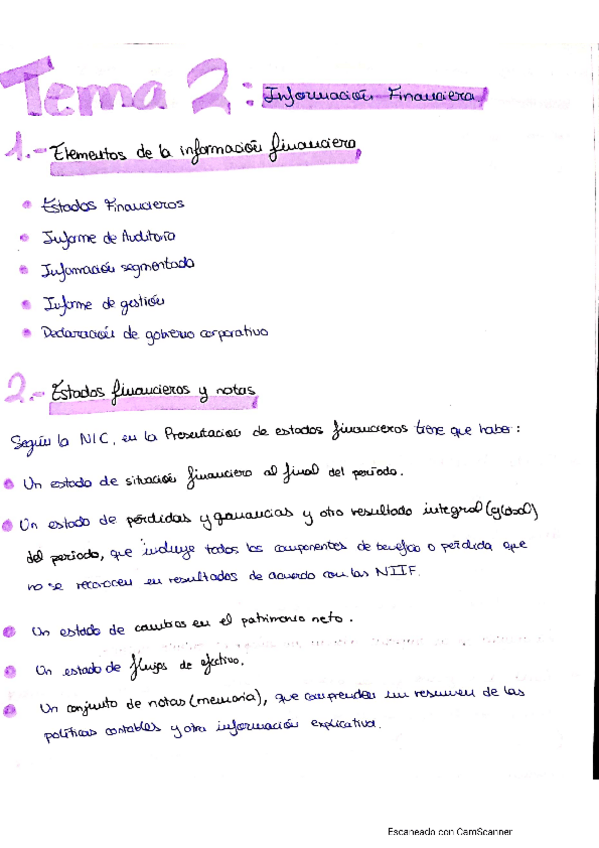 Tema 2: Información Financiera
1.- Elementos de la información financiera
• Estados Financieros
• Informe de Auditoría
• Información segmentada
• Informe de gestión
• Declaración de gobierno corporativo
2.- Estados financieros y notas
Según la NIC, en la Presentación de estados financieros tiene que haber:
• Un estado de situación financiero al final del período.
• Un estado de pérdidas y ganancias y otro resultado integral (global)
del período, que incluye todos los componentes de beneficio o pérdida que
no se reconocen en resultados de acuerdo con las NIIF.
• Un estado de cambios en el patrimonio neto.
• Un estado de flujos de efectivo.
• Un conjunto de notas (memoria), que comprenden un resumen de las
políticas contables y otra información explicativa.
Escaneado con CamScanner